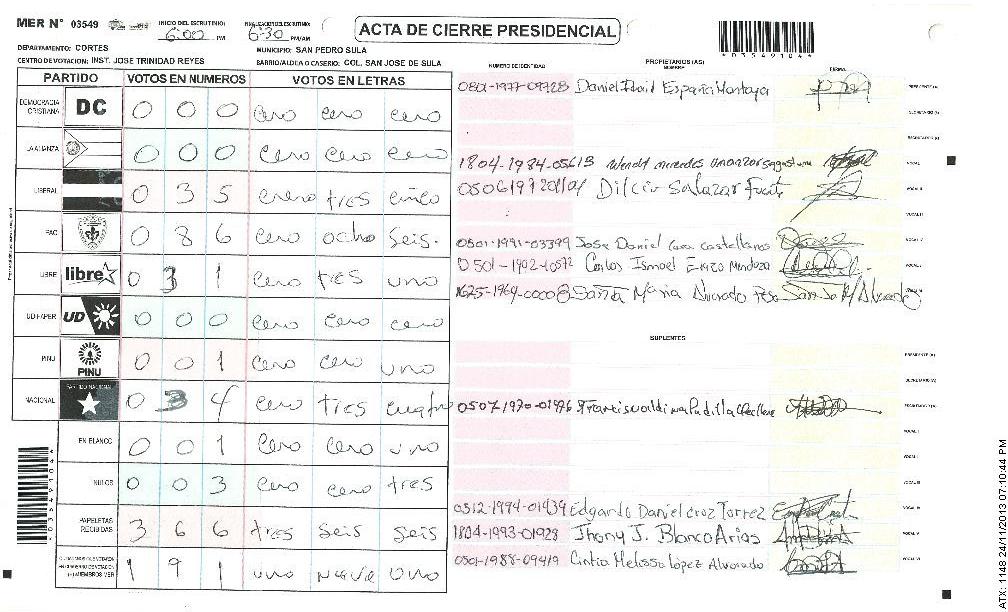 MER N° 03549
INICIO DEL ESCRUTINIO: 6:00 PM
6:30 PM/AM
ACTA DE CIERRE PRESIDENCIAL
*03549104*
DEPARTAMENTO: CORTES
MUNICIPIO: SAN PEDRO SULA
CENTRO DE VOTACION: INST. JOSE TRINIDAD REYES
BARRIO/ALDEA O CASERIO: COL. SAN JOSE DE SULA
PARTIDO VOTOS EN NUMEROS VOTOS EN LETRAS
DEMOCRACIA CRISTIANA DC 0 0 0 cero cero cero
LA ALIANZA 0 0 0 cero cero cero
LIBERAL 0 3 5 cero tres cinco
PAC 0 8 6 cero ocho seis.
LIBRE libre 0 3 1 cero tres uno
UD FAPER UD 0 0 0 cero cero cero
PINU PINU 0 0 1 cero cero uno
NACIONAL PARTIDO NACIONAL 0 3 4 cero tres cuatro
EN BLANCO 0 0 1 cero cero uno
NULOS 0 0 3 cero cero tres
PAPELETAS RECIBIDAS 3 6 6 tres seis seis
1 9 1 uno nueve uno
*03549104*
NUMERO DE IDENTIDAD
PROPIETARIOS (AS)
NOMBRE
FIRMA
0801-1977-09728 Daniel España Montoya PRESIDENTE (A)
SECRETARIO (A)
ESCRUTADOR (A)
1804-1984-05613 Wendy mercedes VOCAL I
Dilcia Salazar Fuente VOCAL II
VOCAL III
0501-1991-03399 Jose Daniel Castellanos VOCAL IV
0501-1902-10572 Carlos Ismael Mendoza VOCAL V
1625-1964-00008 Santa Maria Alvarado
SUPLENTES
PRESIDENTE (A)
SECRETARIO (A)
0507-1970-01976 ESCRUTADOR (A)
VOCAL I
VOCAL II
VOCAL III
0512-1994-01939 Edgardo Daniel Cruz Torrez VOCAL IV
1804-1993-01928 Jhony J. Blanco Arias VOCAL V
0501-1988-09419 Cintia Melissa López Alvarado VOCAL VI
ATX: 1148 24/11/2013 07:10:44 PM